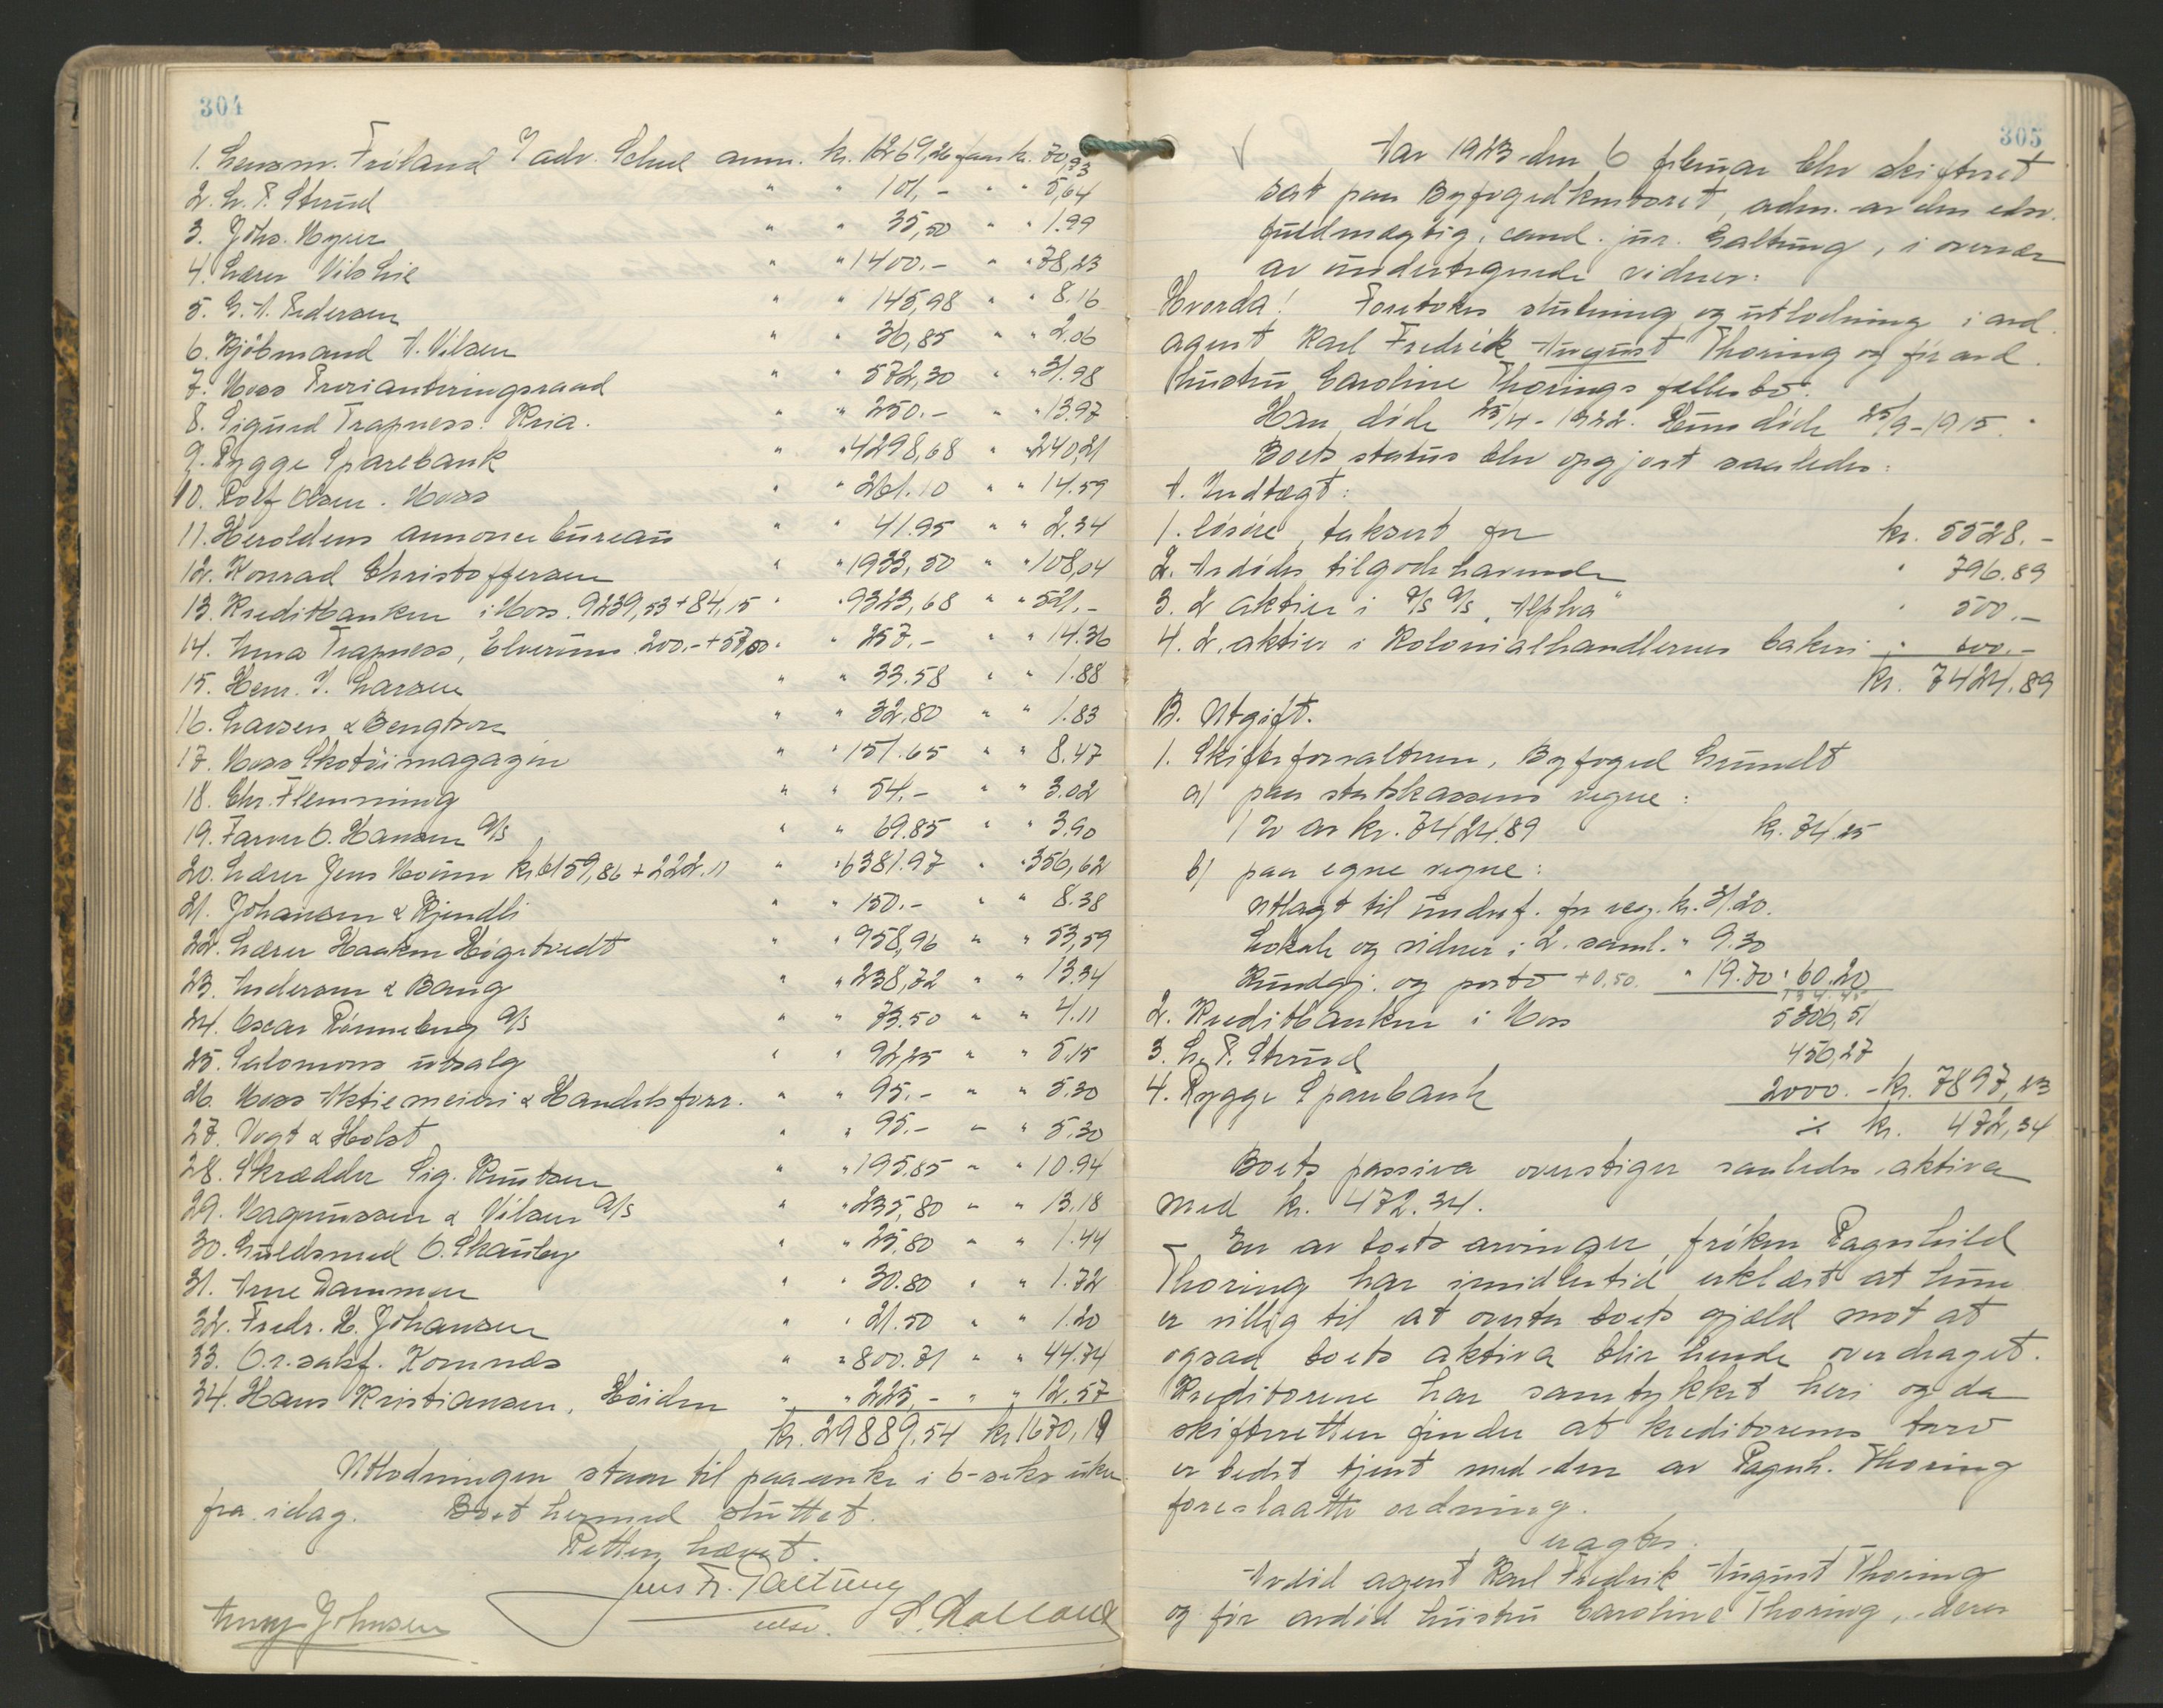 304
1. Lensm. Fröland v/ adv. Schee anm. kr. 1269,26 faar kr. 70,93
2. L. P. Strüd " " 101,- " " 5,64
3. Johs. Myrer " " 35,50 " " 1.99
4. Lærer Nils Lie " " 1400.- " " 78,23
5. G. A. Pedersen " " 145,98 " " 8.16
6. Kjöbmand A. Nilsen " " 36,85 " " 2.06
7. Moss Provianteringsraad " " 572,30 " " 31.98
8. Sigurd Trapness. Kria. " " 250.- " " 13.97
9. Rygge Sparebank " " 4298,68 " " 240,21
10. Rolf Olsen. Moss " " 261.10 " " 14.59
11. Heroldens annonce büreaü " " 41.95 " " 2.34
12. Konrad Christoffersen " " 1933,50 " " 108,04
13. Kreditbanken i Moss. 9239,53 + 84,15 " " 9323,68 " " 521.-
14. Anna Trapness, Elverüm 200.- + 57,00 " " 257.- " " 14.36
15. Henr. J. Larsen " " 33.58 " " 1.88
16. Larsen & Bengtson " " 32,80 " " 1.83
17. Moss Skotöimagazin " " 151.65 " " 8.47
18. Chr. Flemming " " 54.- " " 3.02
19. Farver O. Hansen A/S " " 69.85 " " 3.90
20. Lærer Jens Moüm kr. 6159,86 + 222.11 " " 6381.97 " " 356,62
21. Johansen & Kjendli " " 150.- " " 8.38
22. Lærer Haakon Högetvedt " " 958,96 " " 53,59
23. Andersen & Bang " " 238,72 " " 13.34
24. Oscar Rönneberg A/S " " 73.50 " " 4.11
25. Salomons ütsalg " " 92,25 " " 5.15
26. Moss Aktiemeieri & Handelsforr. " " 95.- " " 5.30
27. Vogt & Holst " " 95.- " " 5.30
28. Skrædder Sig. Knütsen " " 195.85 " " 10.94
29. Magnüssen & Nilsen A/S " " 235,80 " " 13.18
30. Güldsmed O. Skaüby " " 25,80 " " 1.44
31. Arne Dammen " " 30.80 " " 1.72
32. Fredr. H. Johansen " " 21.50 " " 1.20
33. O.r.sakf. Kornmæs " " 800.71 " " 44.74
34. Hans Kristiansen, Höiden " " 225,- " " 12.57
kr. 29889,54 kr 1670,19
Utlodningen staar til paaanke i 6-seks üker
fra idag. Boet hermed slüttet.
Retten hævet.
Jens Fr. Galtung
edsv.
305
Aar 1923 den 6 februar blev skifteret
sat paa Byfogedkontoret, adm. av den edsv.
füldmægtig, cand. jür. Galtüng, i overvær
av ündertegnede vidner:
Hvorda! Foretokes slütning og ütlodning i avd.
agent Karl Fredrik August Thoring og för avd.
hüstrü Caroline Thorings fællesbo.
Han döde 25/4-1922. Hün döde 25/9-1915.
Boets statüs blev opgjort saaledes:
A. Indtægt:
1. lösöre, taksert for kr. 5528.-
2. Avdödes tilgodehavende " 796.89
3. 2 aktier i A/S "Alpha" " 500.-
4. 2 aktier i Kolonialhandlernes bakeri " 600.-
kr. 7424.89
B. Utgift.
1. Skifteforvalteren, Byfoged Gründt
a) paa statskassens vegne:
1 % av kr. 7424.89 kr. 74.25
b) paa egne vegne:
Utlagt til ündersf. for reg. kr. 31.20.
Lokale og vidner i 2. saml. " 9.30
Kündgj. og porto + 0,50. " 19.70 " 60.20
134.45
2. Kreditbanken i Moss 5306,51
3. L. P. Strüd 456,27
4. Rygge Sparebank 2000.- kr. 7897,23
÷ kr. 472,34
Boets passiva overstiger saaledes aktiva
med kr. 472.34.
En av boets arvinger, fröken Ragnhild
Thoring har imidlertid erklært at hün
er villig til at overta boets gjæld mot at
ogsaa boets aktiva blir hende overdraget.
Kreditorene har samtykket heri og da
skifteretten finder at kreditorenes tarv
er bedst tjent med den av Ragnh. Thoring
foreslaatte ordning.
eragtes.
Avdöd agent Karl Fredrik Aügüst Thoring
og för avdöd hüstrü Caroline Thoring, deres